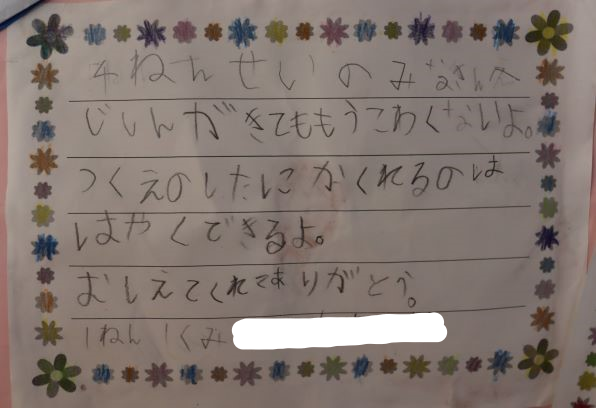 4ねんせいのみなさんへ
じしんがきてももうこわくないよ。
つくえのしたにかくれるのは
はやくできるよ。
おしえてくれてありがとう。
1ねん1くみ